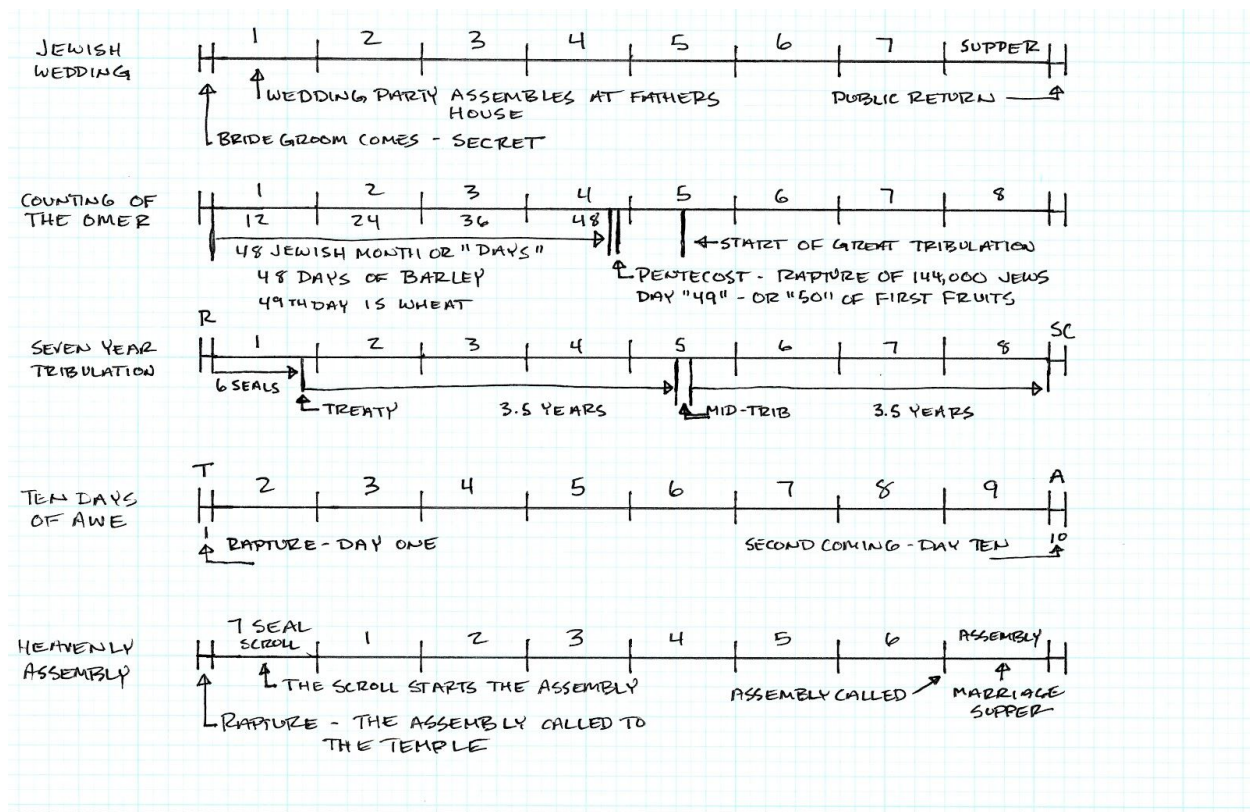 JEWISH WEDDING
1 2 3 4 5 6 7 SUPPER
WEDDING PARTY ASSEMBLES AT FATHERS HOUSE
PUBLIC RETURN
BRIDE GROOM COMES - SECRET
COUNTING OF THE OMER
1 2 3 4 5 6 7 8
12 24 36 48
48 JEWISH MONTH OR "DAYS"
START OF GREAT TRIBULATION
48 DAYS OF BARLEY
PENTECOST - RAPTURE OF 144,000 JEWS
49TH DAY IS WHEAT
DAY "49" - OR "50" OF FIRST FRUITS
R
SC
SEVEN YEAR TRIBULATION
1 2 3 4 5 6 7 8
6 SEALS
TREATY
3.5 YEARS
MID-TRIB
3.5 YEARS
T
A
TEN DAYS OF AWE
2 3 4 5 6 7 8 9
1
10
RAPTURE - DAY ONE
SECOND COMING - DAY TEN
HEAVENLY ASSEMBLY
7 SEAL SCROLL
1 2 3 4 5 6 ASSEMBLY
THE SCROLL STARTS THE ASSEMBLY
ASSEMBLY CALLED
MARRIAGE SUPPER
RAPTURE - THE ASSEMBLY CALLED TO THE TEMPLE